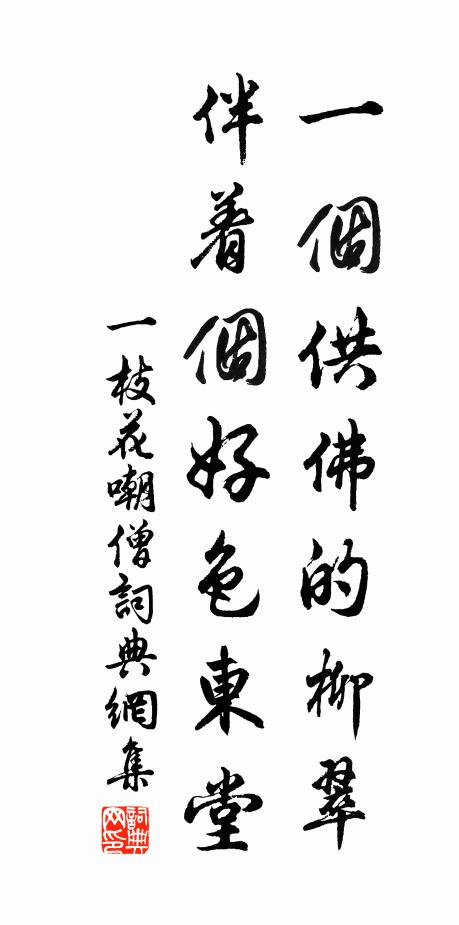 一個供佛的柳翠
伴着個好色東堂
一枝花嘲僧詞典網集
詞典網印